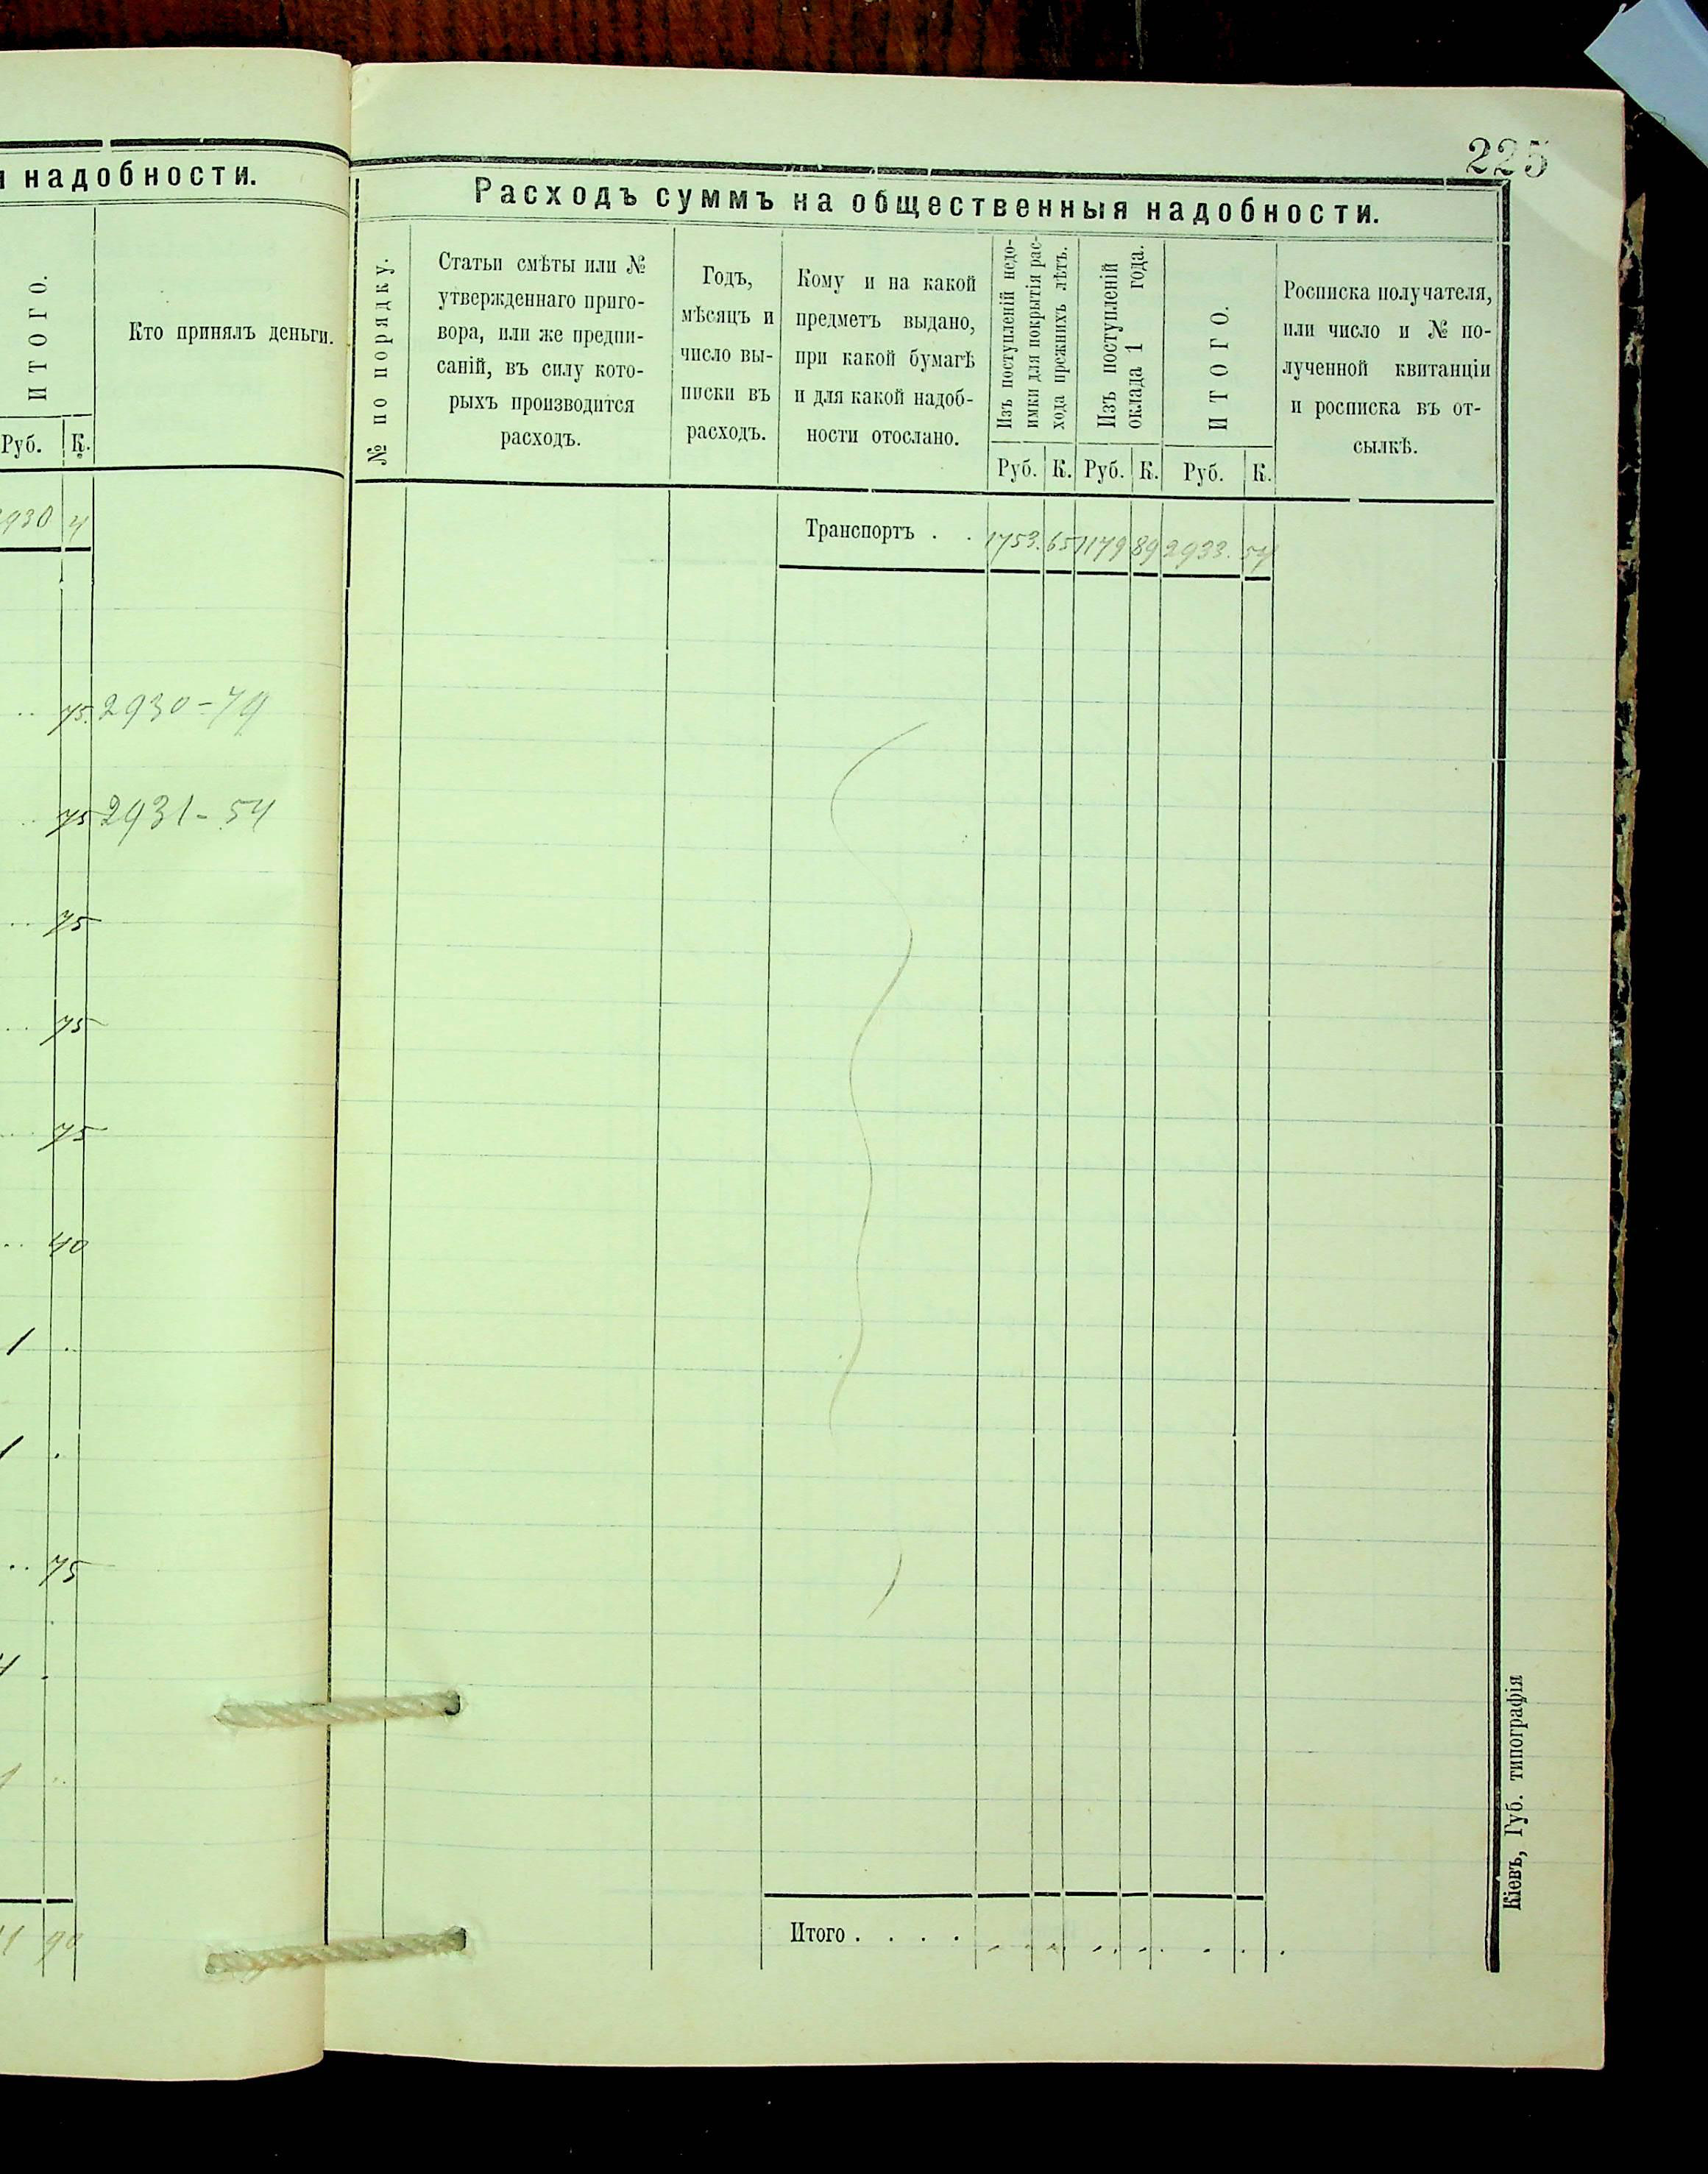 надобности.
ИТОГО.
Кто принялъ деньги.
Руб. К.
930 4
75. 2930-79
75 2931-54
75
75
75
40
1
1
75
1
90
225
Расходъ суммъ на общественныя надобности.
№ по порядку.
Статьи смѣты или №
утвержденнаго приго-
вора, или же предпи-
саній, въ силу кото-
рыхъ производится
расходъ.
Годъ,
мѣсяцъ и
число вы-
писки въ
расходъ.
Кому и на какой
предметъ выдано,
при какой бумагѣ
и для какой надоб-
ности отослано.
Изъ поступленій недо-
имки для покрытія рас-
хода прежнихъ лѣтъ.
Изъ поступленій
оклада 1 года.
ИТОГО.
Росписка получателя,
или число и № по-
лученной квитанціи
и росписка въ от-
сылкѣ.
Руб. К. Руб. К. Руб. К.
Транспортъ . . 1753. 65 1179 89 2933. 54
Итого . . . .
Кіевъ, Губ. типографія